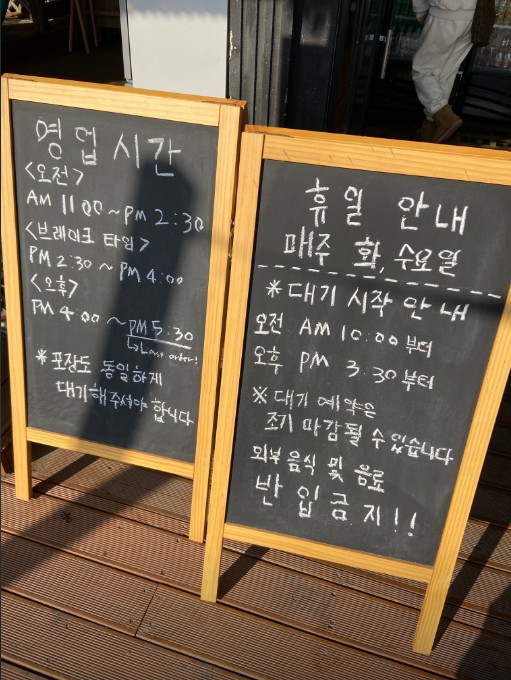 영업시간
<오전>
AM 11:00 ~ PM 2:30
<브레이크 타임>
PM 2:30 ~ PM 4:00
<오후>
PM 4:00 ~ PM 5:30
↳Last order!
* 포장도 동일하게
대기해주셔야 합니다
휴일 안내
매주 화, 수요일
* 대기 시작 안내
오전 AM 10:00 부터
오후 PM 3:30 부터
※ 대기 예약은
조기 마감될 수 있습니다
외부 음식 및 음료
반입금지!!